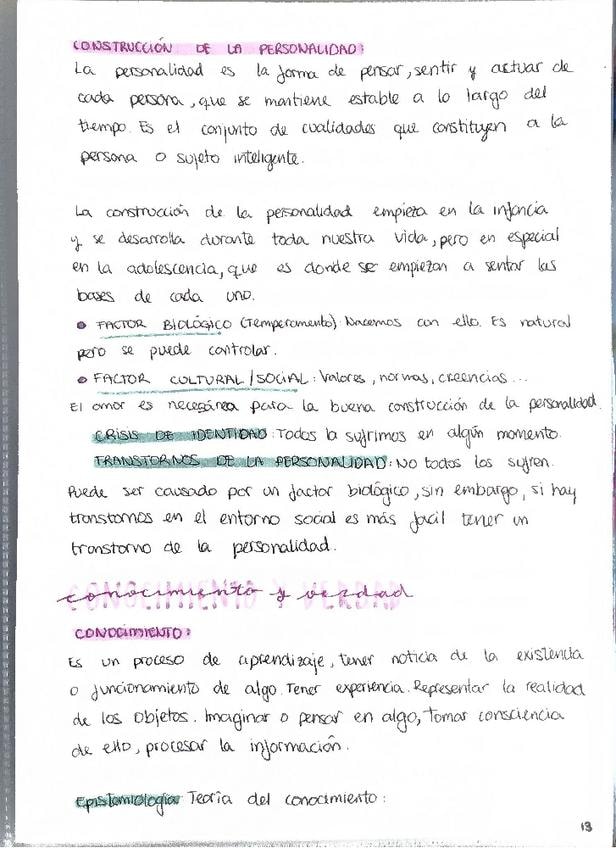 CONSTRUCCIÓN DE LA PERSONALIDAD:
La personalidad es la forma de pensar, sentir y actuar de
cada persona, que se mantiene estable a lo largo del
tiempo. Es el conjunto de cualidades que constituyen a la
persona o sujeto inteligente.
La construcción de la personalidad empieza en la infancia
y se desarrolla durante toda nuestra vida, pero en especial
en la adolescencia, que es donde se empiezan a sentar las
bases de cada uno.
• FACTOR BIOLÓGICO (Temperamento): Nacemos con ello. Es natural
pero se puede controlar.
• FACTOR CULTURAL/SOCIAL: Valores, normas, creencias...
El amor es necesárea para la buena construcción de la personalidad.
CRISIS DE IDENTIDAD: Todos la sufrimos en algún momento.
TRANSTORNOS DE LA PERSONALIDAD: NO todos los sufren.
Puede ser causado por un factor biológico, sin embargo, si hay
transtornos en el entorno social es más facil tener un
transtorno de la personalidad.
conocimiento y verdad
CONOCIMIENTO:
Es un proceso de aprendizaje, tener noticia de la existencia
o funcionamiento de algo. Tener experiencia. Representar la realidad
de los objetos. Imaginar o pensar en algo, tomar consciencia
de ello, procesar la información.
Epistemiología Teoría del conocimiento:
13